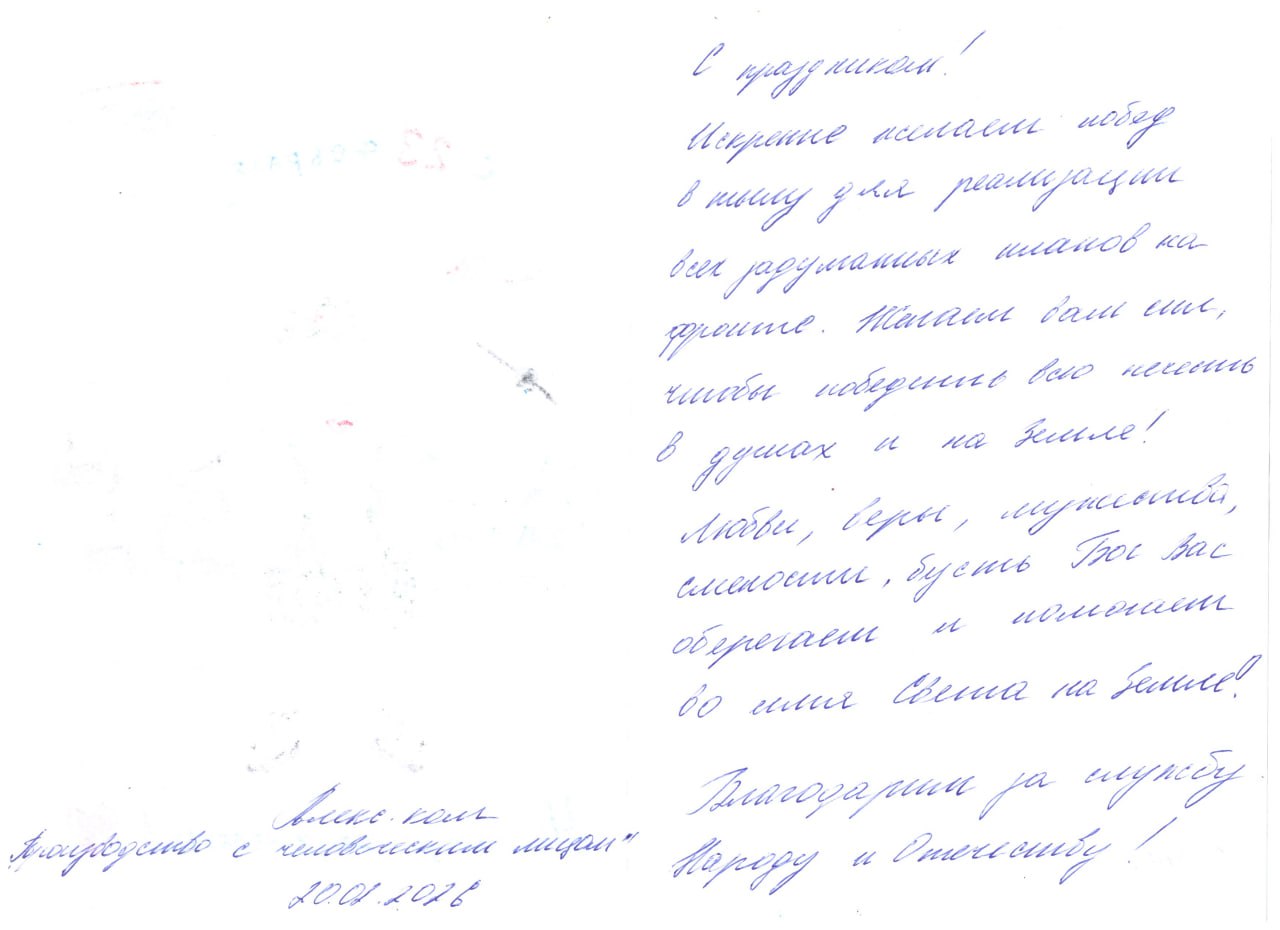 С праздником!
Искренне желаем побед
в тылу для реализации
всех задуманных планов на
фронте. Желаем вам сил,
чтобы победить всю нечисть
в душах и на Земле!
Любви, веры, мужества,
смелости, пусть Бог Вас
оберегает и помогает
во имя Света на Земле!
Благодарим за службу
Народу и Отечеству!
С 23 февраля
Алекс. ком
"Производство с человеческим лицом"
20.02.2026